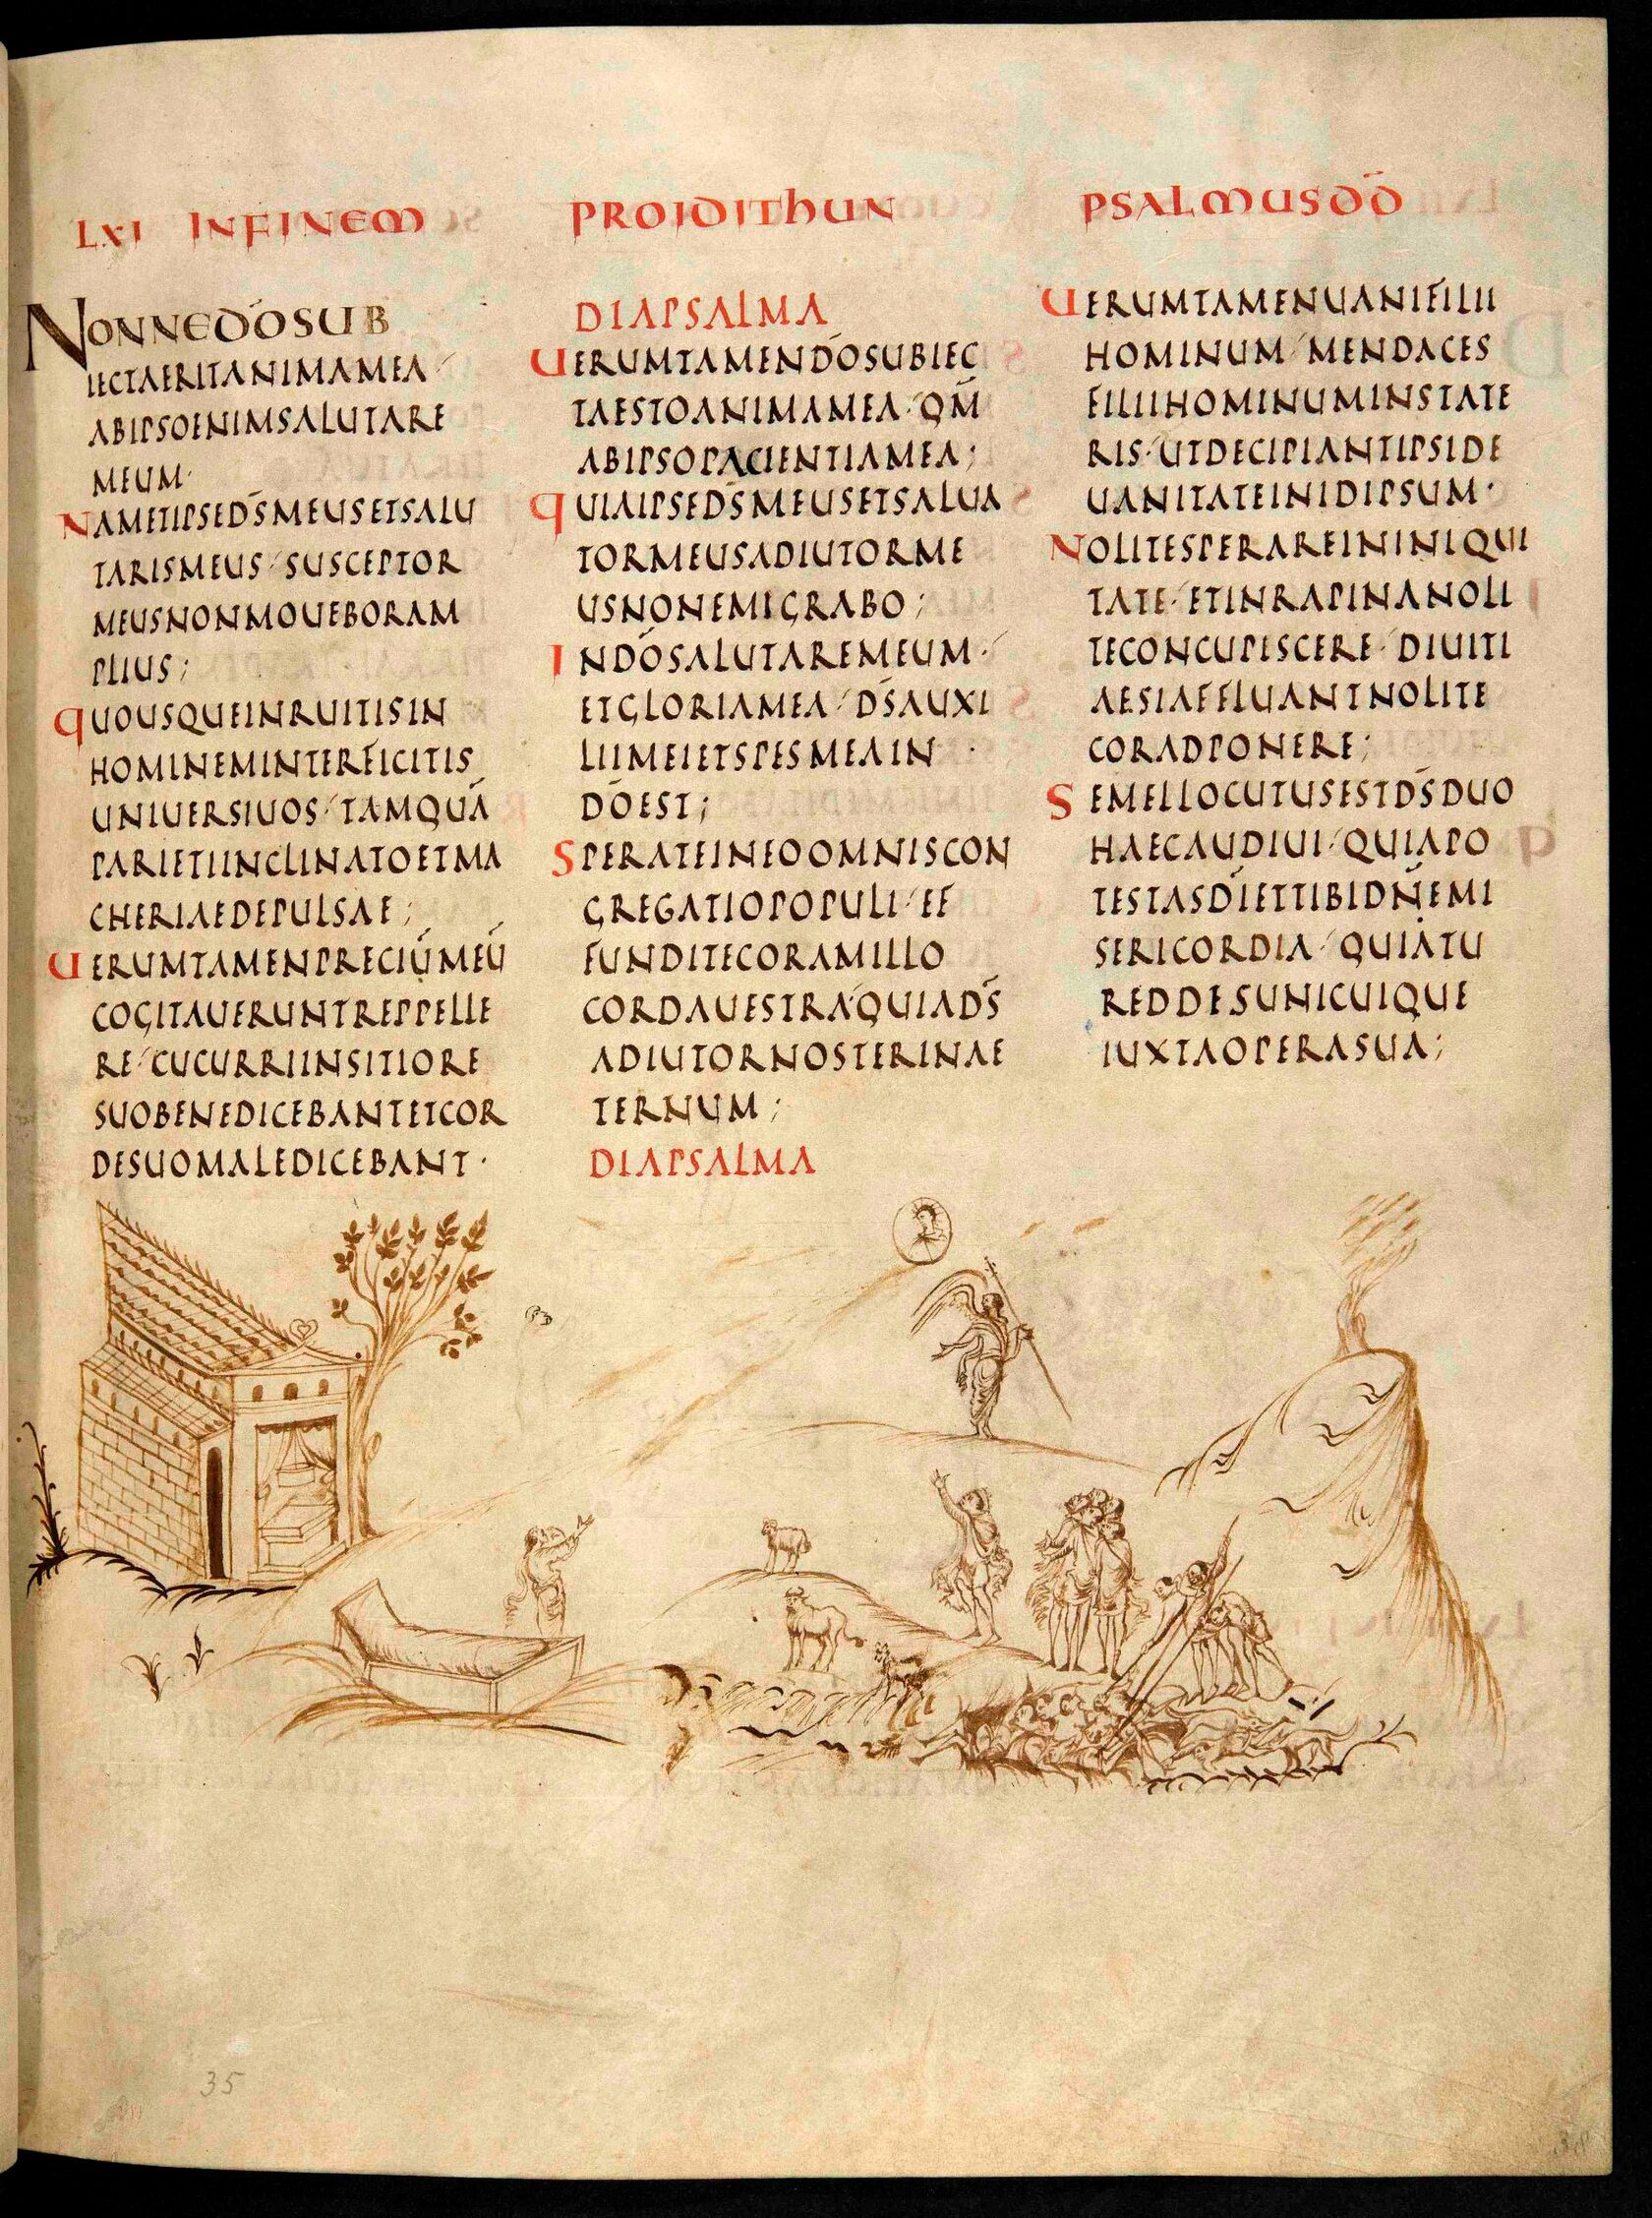 LXI INFINEM PROIDITHUN PSALMUSDD̄
NONNED̄OSUB
IECTAERITANIMAMEA
ABIPSOENIMSALUTARE
MEUM·
NAMETIPSED̄SMEUSETSALU
TARISMEUS·SUSCEPTOR
MEUSNONMOUEBORAM
PLIUS;
QUOUSQUEINRUITISIN
HOMINEMINTERFICITIS
UNIUERSIUOS·TAMQUĀ
PARIETIINCLINATOETMA
CHERIAEDEPULSAE;
UERUMTAMENPRECIŪMEŪ
COGITAUERUNTREPPELLE
RE·CUCURRIINSITIORE
SUOBENEDICEBANTETCOR
DESUOMALEDICEBANT·
DIAPSALMA
UERUMTAMEND̄OSUBIEC
TAESTOANIMAMEA·QM̄
ABIPSOPACIENTIAMEA;
QUIAIPSED̄SMEUSETSALUA
TORMEUSADIUTORME
USNONEMIGRABO;
IND̄OSALUTAREMEUM·
ETGLORIAMEA·D̄SAUXI
LIIMEIETSPESMEAIN
D̄OEST;
SPERATEINEOOMNISCON
GREGATIOPOPULI·EF
FUNDITECORAMILLO
CORDAUESTRA·QUIAD̄S
ADIUTORNOSTERINAE
TERNUM;
DIAPSALMA
UERUMTAMENUANIFILII
HOMINUM·MENDACES
FILIIHOMINUMINSTATE
RIS·UTDECIPIANTIPSIDE
UANITATEINIDIPSUM·
NOLITESPERAREININIQUI
TATE·ETINRAPINANOLI
TECONCUPISCERE·DIUITI
AESIAFFLUANTNOLITE
CORADPONERE;
SEMELLOCUTUSESTD̄SDUO
HAECAUDIUI·QUIAPO
TESTASD̄IETTIBIDN̄EMI
SERICORDIA·QUIATU
REDDESUNICUIQUE
IUXTAOPERASUA;
35